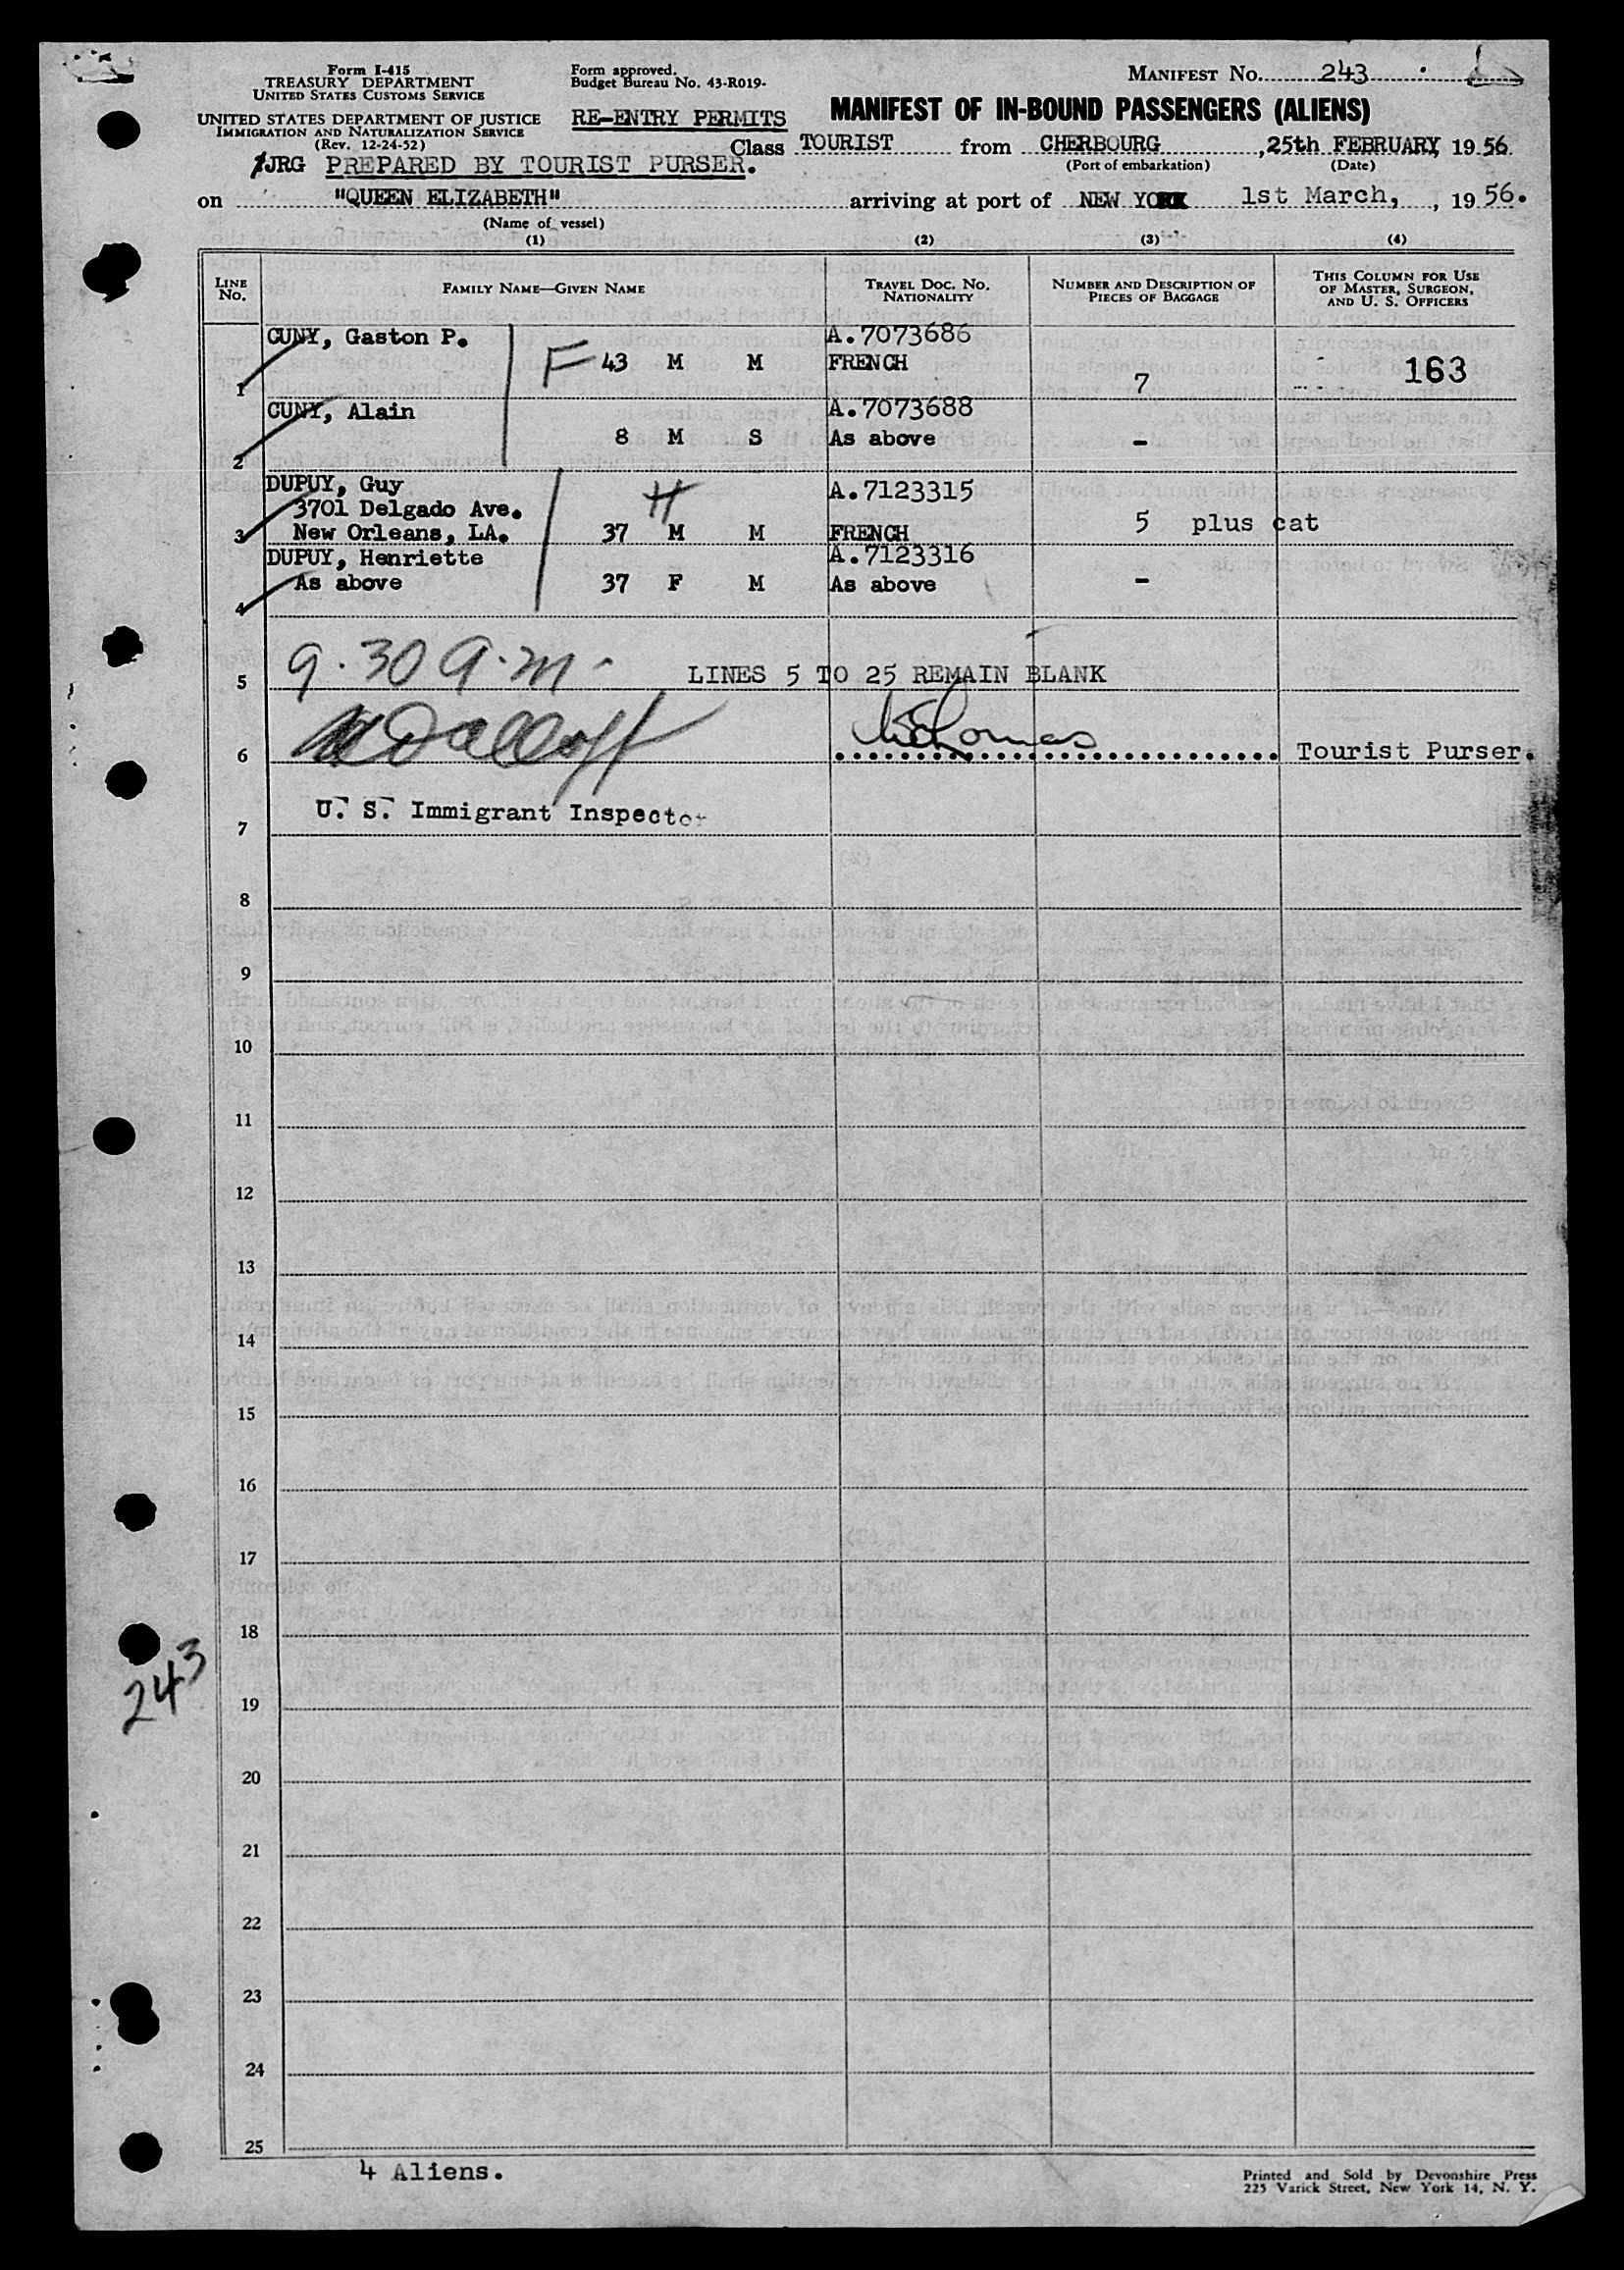 Form I-415
TREASURY DEPARTMENT
UNITED STATES CUSTOMS SERVICE
UNITED STATES DEPARTMENT OF JUSTICE
IMMIGRATION AND NATURALIZATION SERVICE
(Rev. 12-24-52)
Form approved.
Budget Bureau No. 43-R019-
RE-ENTRY PERMITS
MANIFEST NO. 243
MANIFEST OF IN-BOUND PASSENGERS (ALIENS)
Class TOURIST from CHERBOURG, 25th FEBRUARY, 1956.
(Port of embarkation) (Date)
JRG PREPARED BY TOURIST PURSER.
on "QUEEN ELIZABETH" arriving at port of NEW YORK 1st March, , 1956.
(Name of vessel)
(1) (2) (3) (4)
LINE NO. FAMILY NAME—GIVEN NAME TRAVEL DOC. NO. NATIONALITY NUMBER AND DESCRIPTION OF PIECES OF BAGGAGE THIS COLUMN FOR USE OF MASTER, SURGEON, AND U. S. OFFICERS
CUNY, Gaston P. A.7073686
F 43 M M FRENCH
1 7 163
CUNY, Alain A.7073688
8 M S As above -
2
DUPUY, Guy H A.7123315
3701 Delgado Ave.
3 New Orleans, LA. 37 M M FRENCH 5 plus cat
DUPUY, Henriette A.7123316
As above 37 F M As above -
4
9.30 A.M.
5 LINES 5 TO 25 REMAIN BLANK
6 Tourist Purser.
U. S. Immigrant Inspector
7
8
9
10
11
12
13
14
15
16
17
18
243
19
20
21
22
23
24
25
4 Aliens.
Printed and Sold by Devonshire Press
225 Varick Street, New York 14, N. Y.